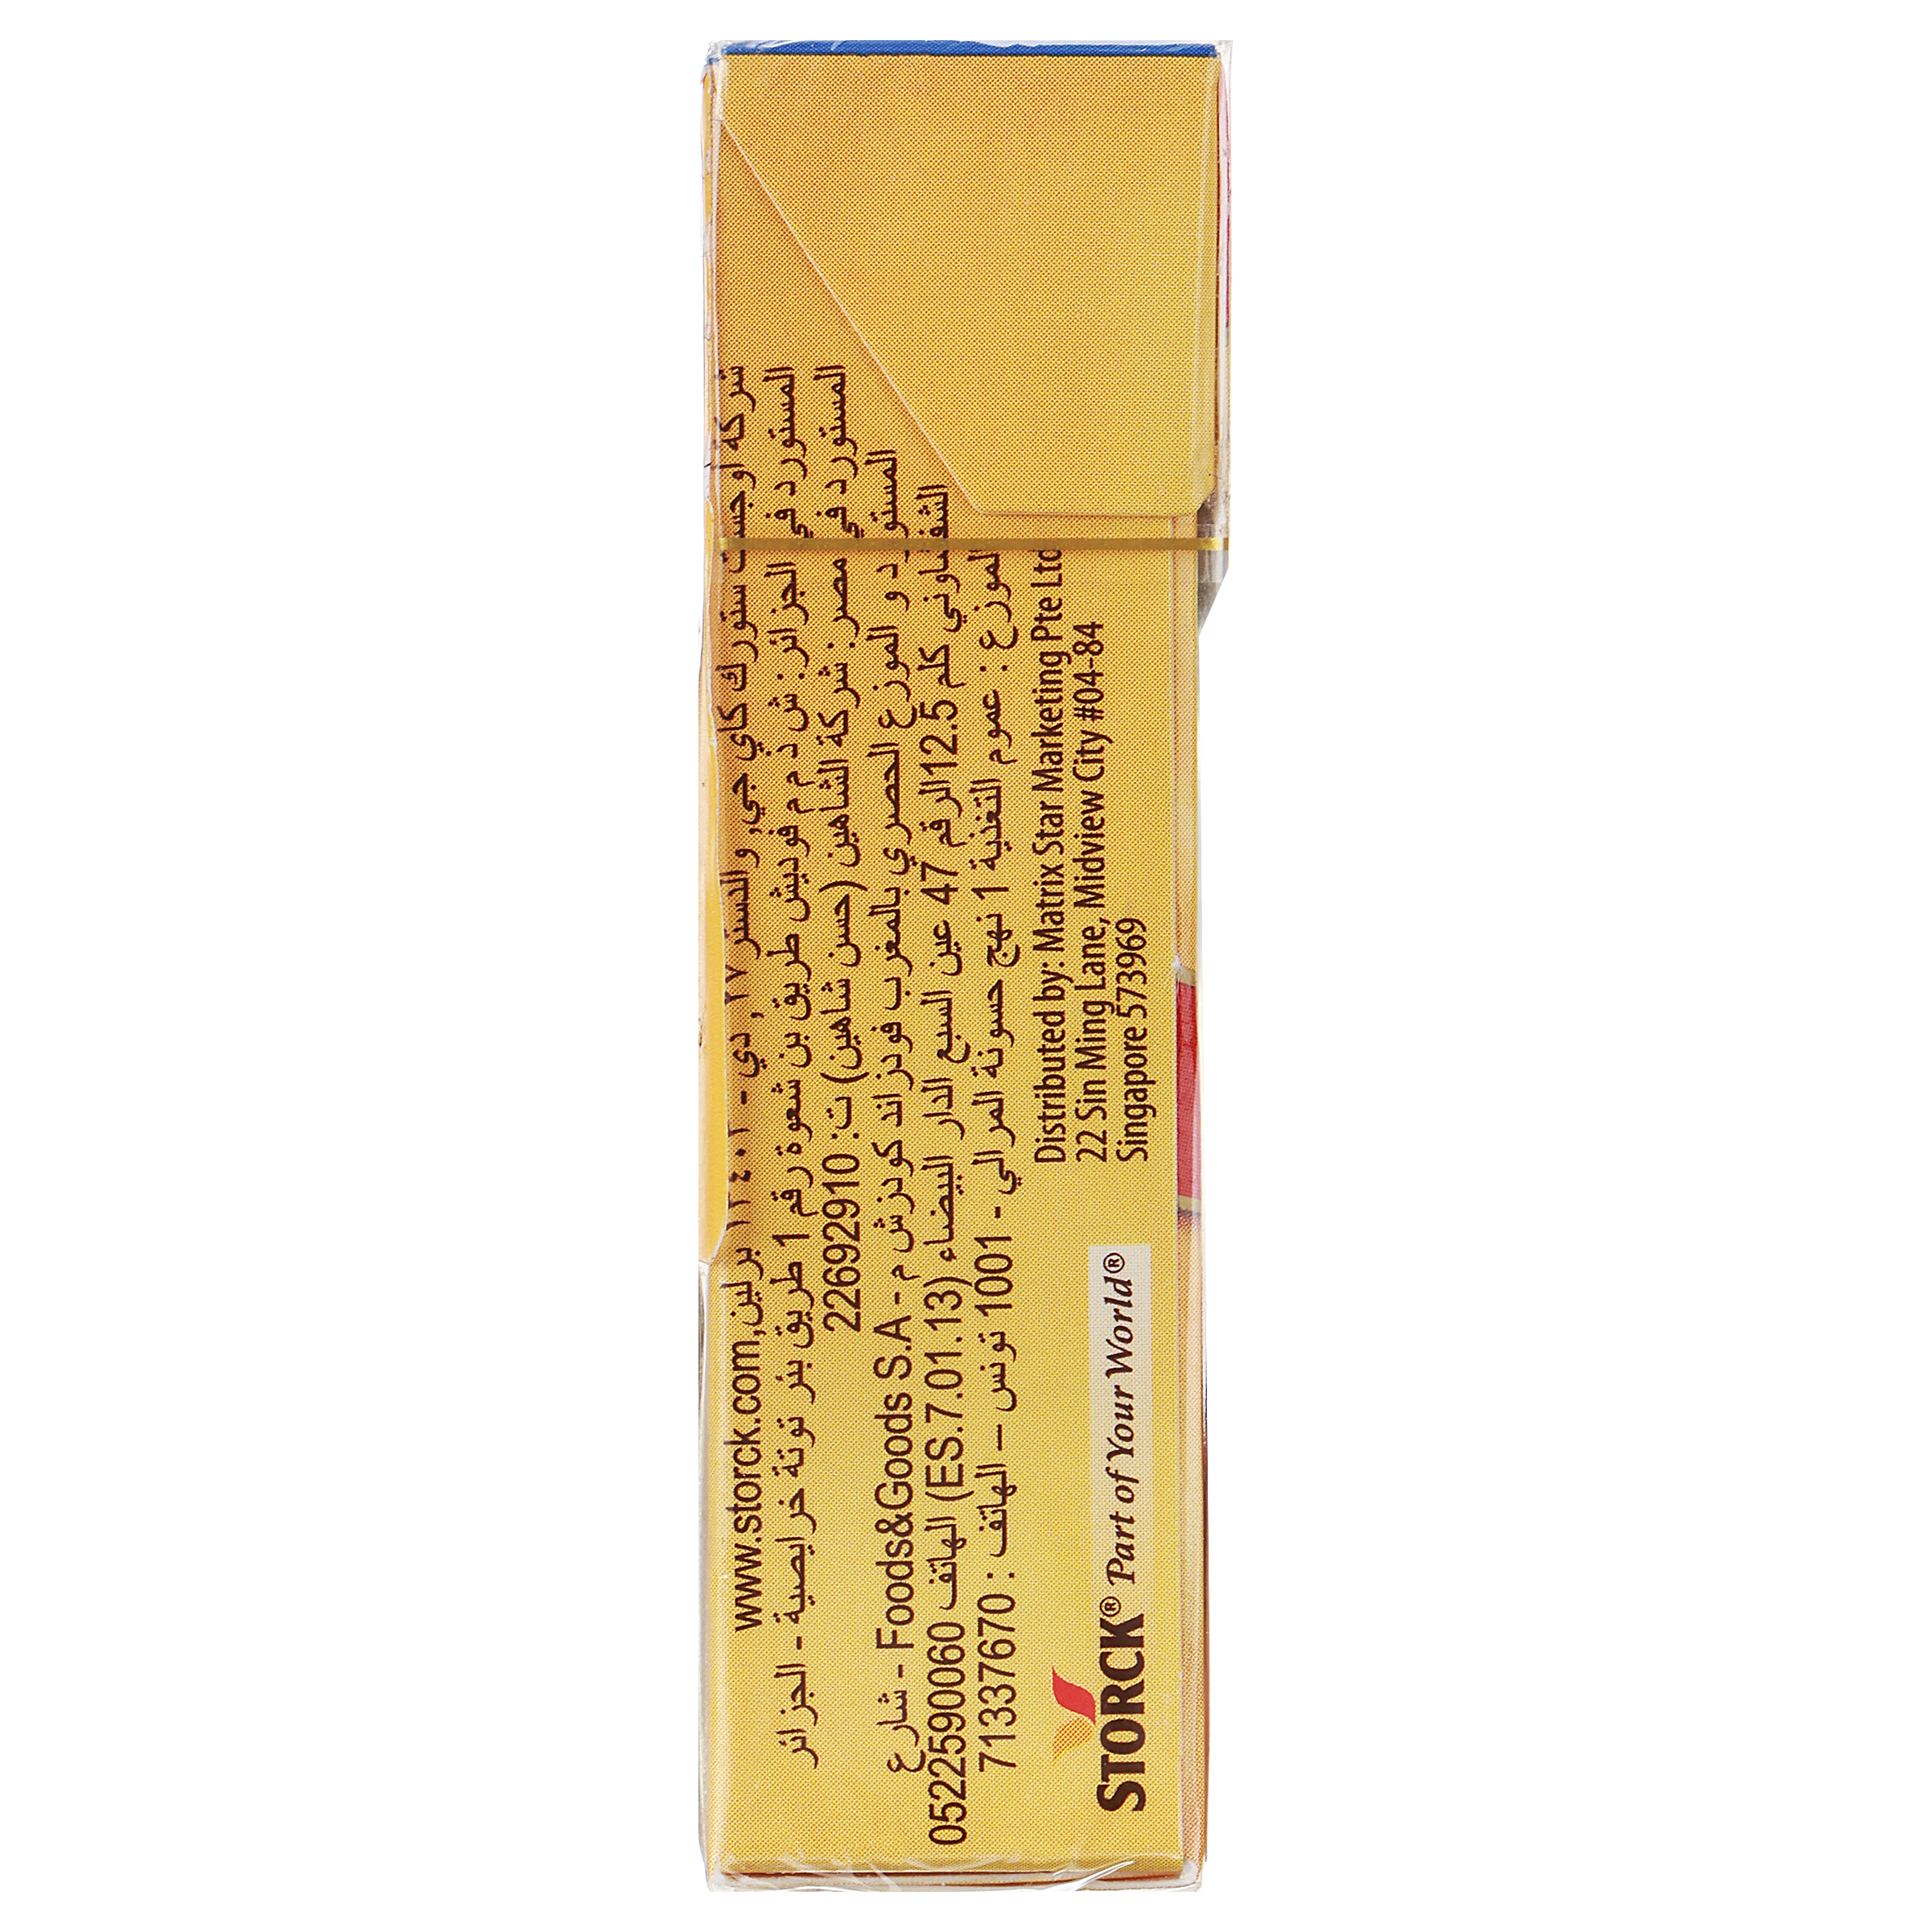 شركة أوجست ستورك كاي جي, والدستر ٢٧, دي - ١٣٤٠٣ برلين, www.storck.com
المستورد في الجزائر: ش ذ م م فوديش طريق بن شعوة رقم 1 طريق بئر توتة خرايصية - الجزائر
المستورد في مصر: شركة الشاهين (حسن شاهين) ت: 22692910
المستورد و الموزع الحصري بالمغرب فودز اند كودز ش م - Foods&Goods S.A - شارع
الشفشاوني كلم 12.5 الرقم 47 عين السبع الدار البيضاء (ES.7.01.13) الهاتف 0522590060
الموزع : عموم التغذية 1 نهج حسونة المرالي - 1001 تونس – الهاتف : 71337670
Distributed by: Matrix Star Marketing Pte Ltd
22 Sin Ming Lane, Midview City #04-84
Singapore 573969
STORCK® Part of Your World®